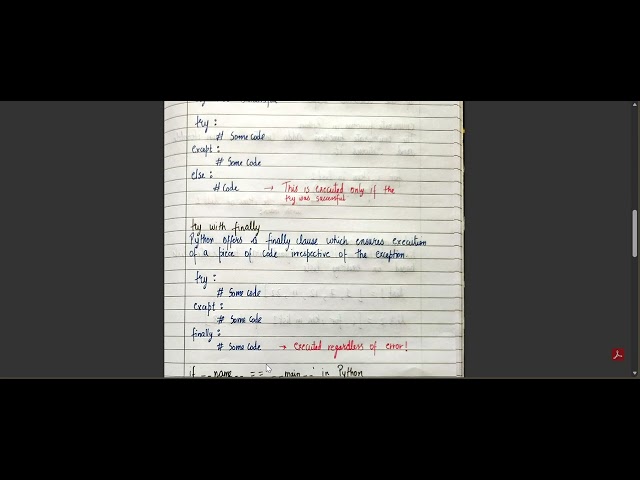 try :
# Some code
except :
# Some code
else :
# Code → This is executed only if the
try was successful
try with finally
Python offers a finally clause which ensures execution
of a piece of code irrespective of the exception.
try :
# Some code
except :
# Some code
finally :
# Some code → executed regardless of error!
if __name__ == '__main__' in Python